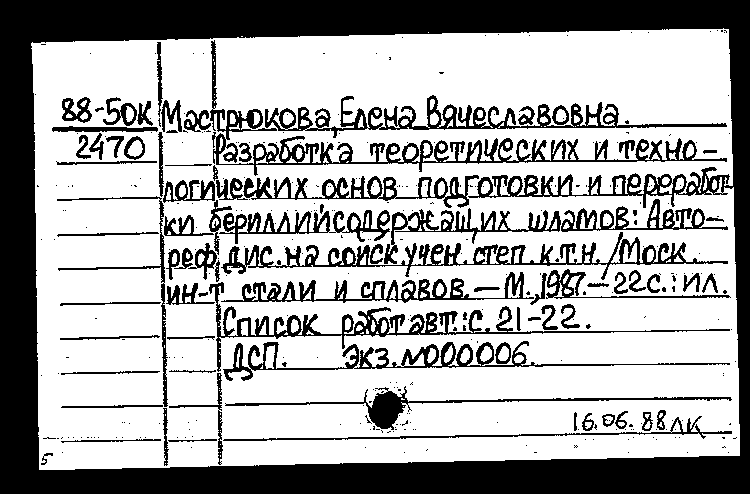 88-50К Мастрюкова, Елена Вячеславовна.
2470 Разработка теоретических и техно-
логических основ подготовки и переработ
ки бериллийсодержащих шламов: Авто-
реф. дис. на соиск. учен. степ. к.т.н. /Моск.
ин-т стали и сплавов. — М., 1987. — 22 с.: ил.
Список работ авт.: с. 21-22.
ДСП. Экз. №000006.
16.06.88 ЛК
5